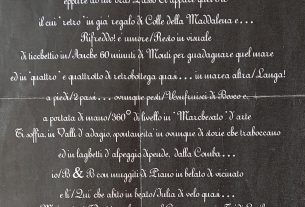 il cui "retro" in già regalo di Colle della Maddalena e...
Rifreddo! e' umore/Resto in visuale
di ticchettio in/Anche 60 minuti di Monti per guadagnare quel mare
ed in "quattro" e quattrotto di retrobottega quasi... in marea altra/Langa!
a piedi/2 passi... ovunque pesti/Usufruisci di Bosco e,
a portata di mano/360° di livello in "Marchesato" d'arte
Ti soffia, in Valli d'adagio, spontaneità in ovunque di storie che traboccano
ed in laghetti d'alpeggio dipende, dalla Comba...
io/B & B con muggiti di Piano in belato di vicinato
e li/Qui che abito in beato/Julia di velo quai...